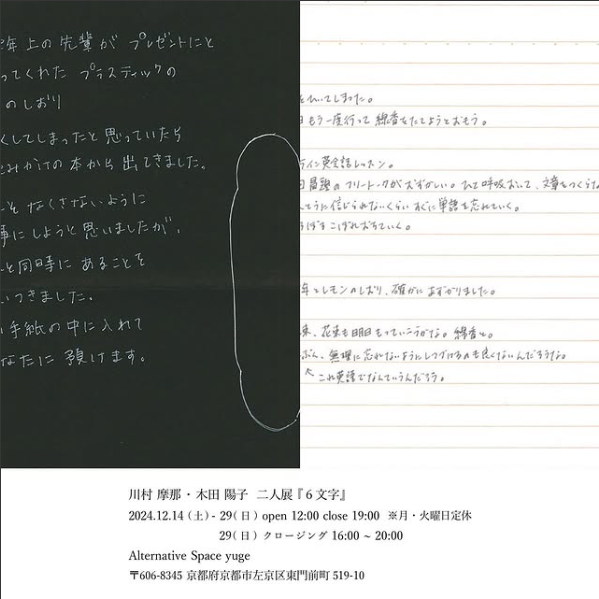 年上の先輩が プレゼントにと
ってくれた プラスティックの
のしおり
くしてしまったと思っていたら
みかけの本から出てきました。
なくさないように
事にしようと思いましたが、
と同時に あることを
いつきました。
手紙の中に入れて
なたに 預けます。
をひいてしまった。
もう一度行って 線香をたてようとおもう。
ライン英会話レッスン。
のフリートークがむずかしい。ひと呼吸おいて、文章をつくらな
に信じられないくらい すぐに単語を忘れていく。
こぼれおちていく。
とレモンのしおり、確かに あずかりました。
花束も明日もっていこうかな。線香と。
ぶん、無理に忘れないようにしつづけるのも良くないんだろうな。
これ英語でなんていうんだろう。
川村 摩那・木田 陽子 二人展『6文字』
2024.12.14 (土) - 29 (日) open 12:00 close 19:00 ※月・火曜日定休
29 (日) クロージング 16:00 ~ 20:00
Alternative Space yuge
〒606-8345 京都府京都市左京区東門前町 519-10